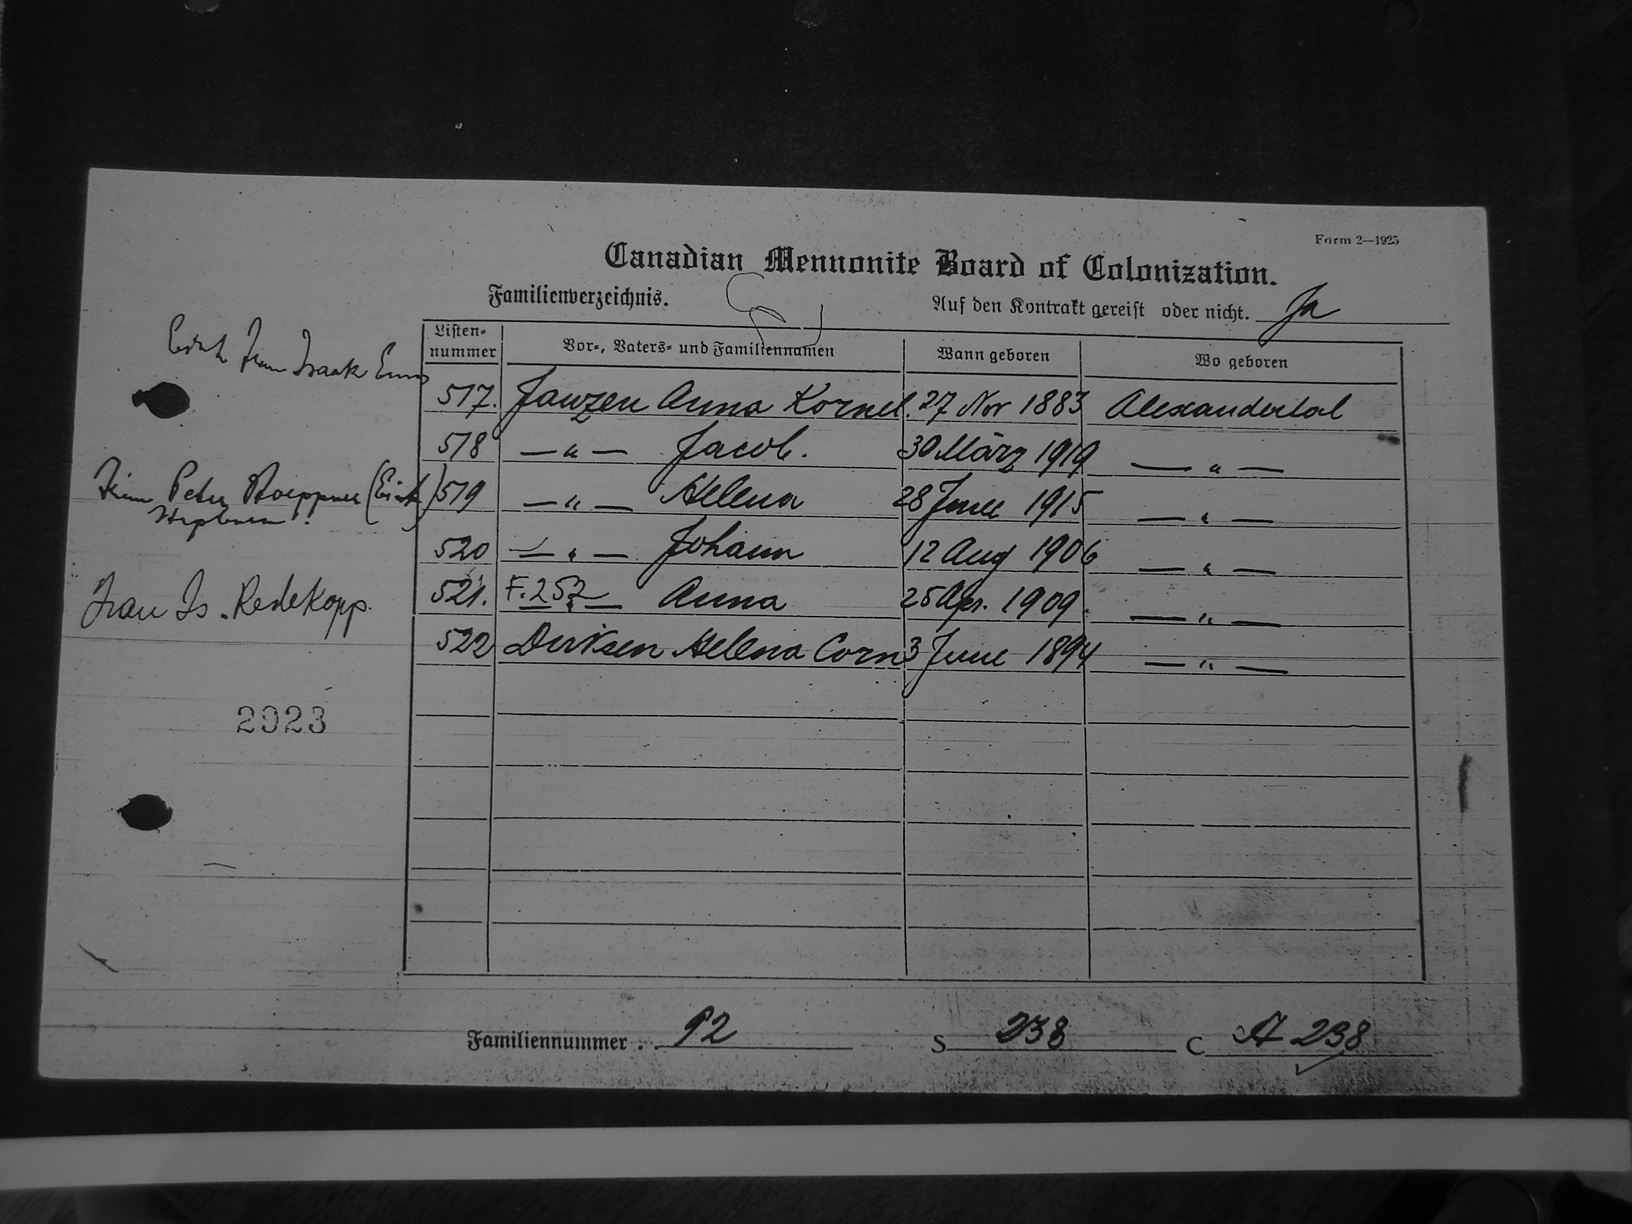 Form 2—1925
Canadian Mennonite Board of Colonization.
Familienverzeichnis.
Auf den Kontrakt gereist oder nicht. Ja
Listen-nummer Vor-, Vaters- und Familiennamen Wann geboren Wo geboren
Frau Isaak Enns
517. Janzen Anna Kornel. 27 Nov 1883 Alexandertal
518 — " — Jacob. 30 März 1919 — " —
Frau Peter Hoeppner
519 — " — Helena 28 June 1915 — " —
520 — " — Johann 12 Aug 1906 — " —
Frau Is. Redekopp.
521. F. 252 — " — Anna 25 Apr. 1909. — " —
522 Dirksen Helena Corn 3 June 1894 — " —
2923
Familiennummer . 92 S 238 C A 238